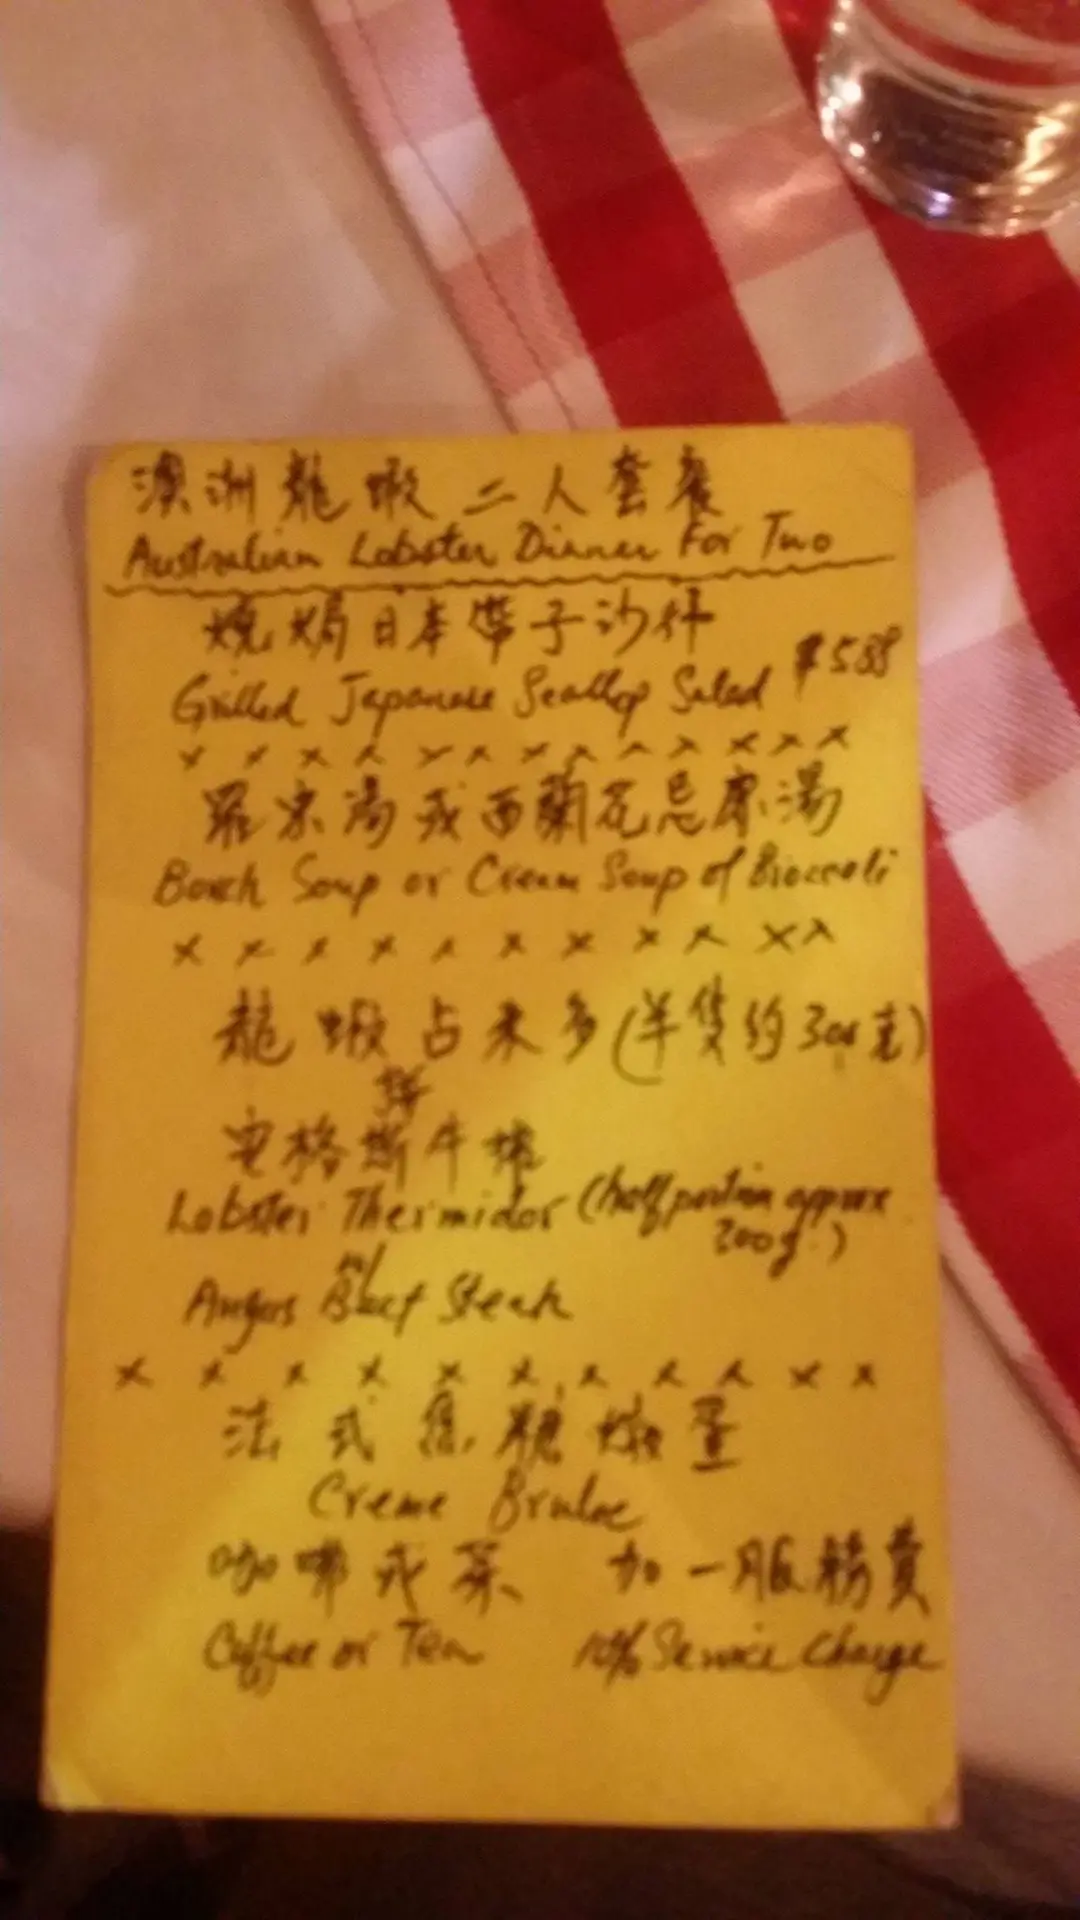 澳洲龍蝦二人套餐
Australian Lobster Dinner For Two
燒焗日本帶子沙律
$588
Grilled Japanese Scallop Salad
x x x x x x x x x x x x x
羅宋湯或西蘭花忌廉湯
Borch Soup or Cream Soup of Broccoli
x x x x x x x x x x x
龍蝦占米多(半隻約300克)
拼
安格斯牛排
Lobster Thermidor (half portion approx
300g.)
w/
Angus Beef Steak
x x x x x x x x x x x
法式焦糖燉蛋
Creme Brulee
咖啡或茶 加一服務費
Coffee or Tea 10% Service Charge